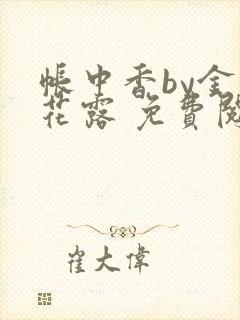 帳中香by金
花露 免費閱
崔大偉